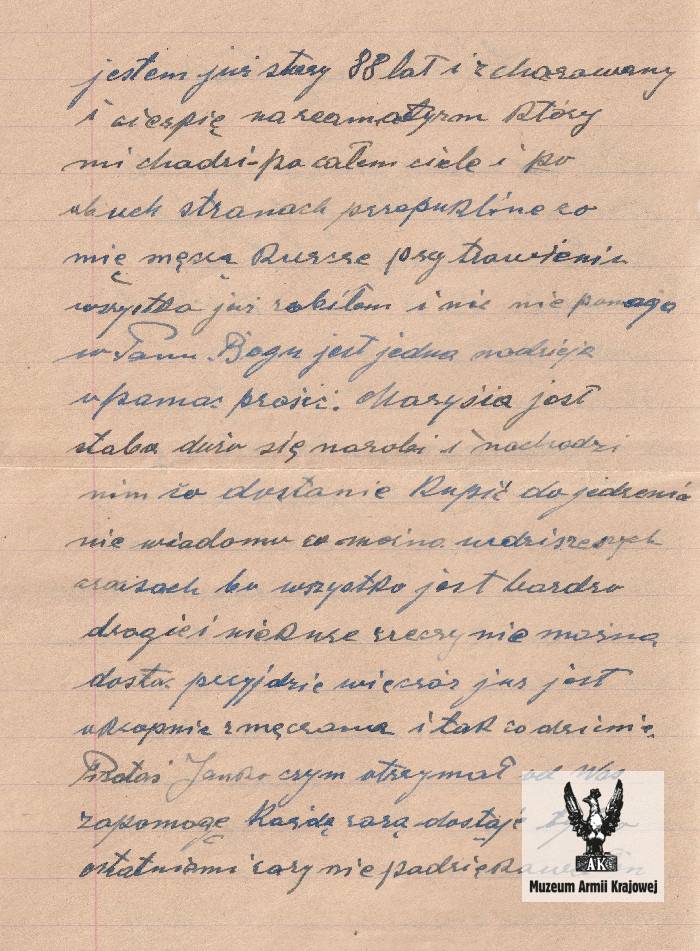 jestem już stary 88 lat i zcharowany
i cierpię na reamatyzm który
mi chodzi-po całem ciele i po
obuch stranach przepukline co
mię męczą kurcze przy trawieniu
wszytko już robiłem i nic nie pomaga
w Panu. Bogu jest jedna nadzieja
o pamac prosić. Marysia jest
słaba dużo się narobi i nachodzi
nim co dostanie kupić do jedzenia
nie wiadomo co można w dziszeszych
czaisach bo wszystko jest bardzo
drogie i niekure rzeczy nie można
dostac przyjdzie wieczór już jest
okropnie zmęczana i tak codzienie.
Janko czym otrzymał od Was
zapomogę Każdą razą dostaję
ostatniemi razy nie
AK
Muzeum Armii Krajowej